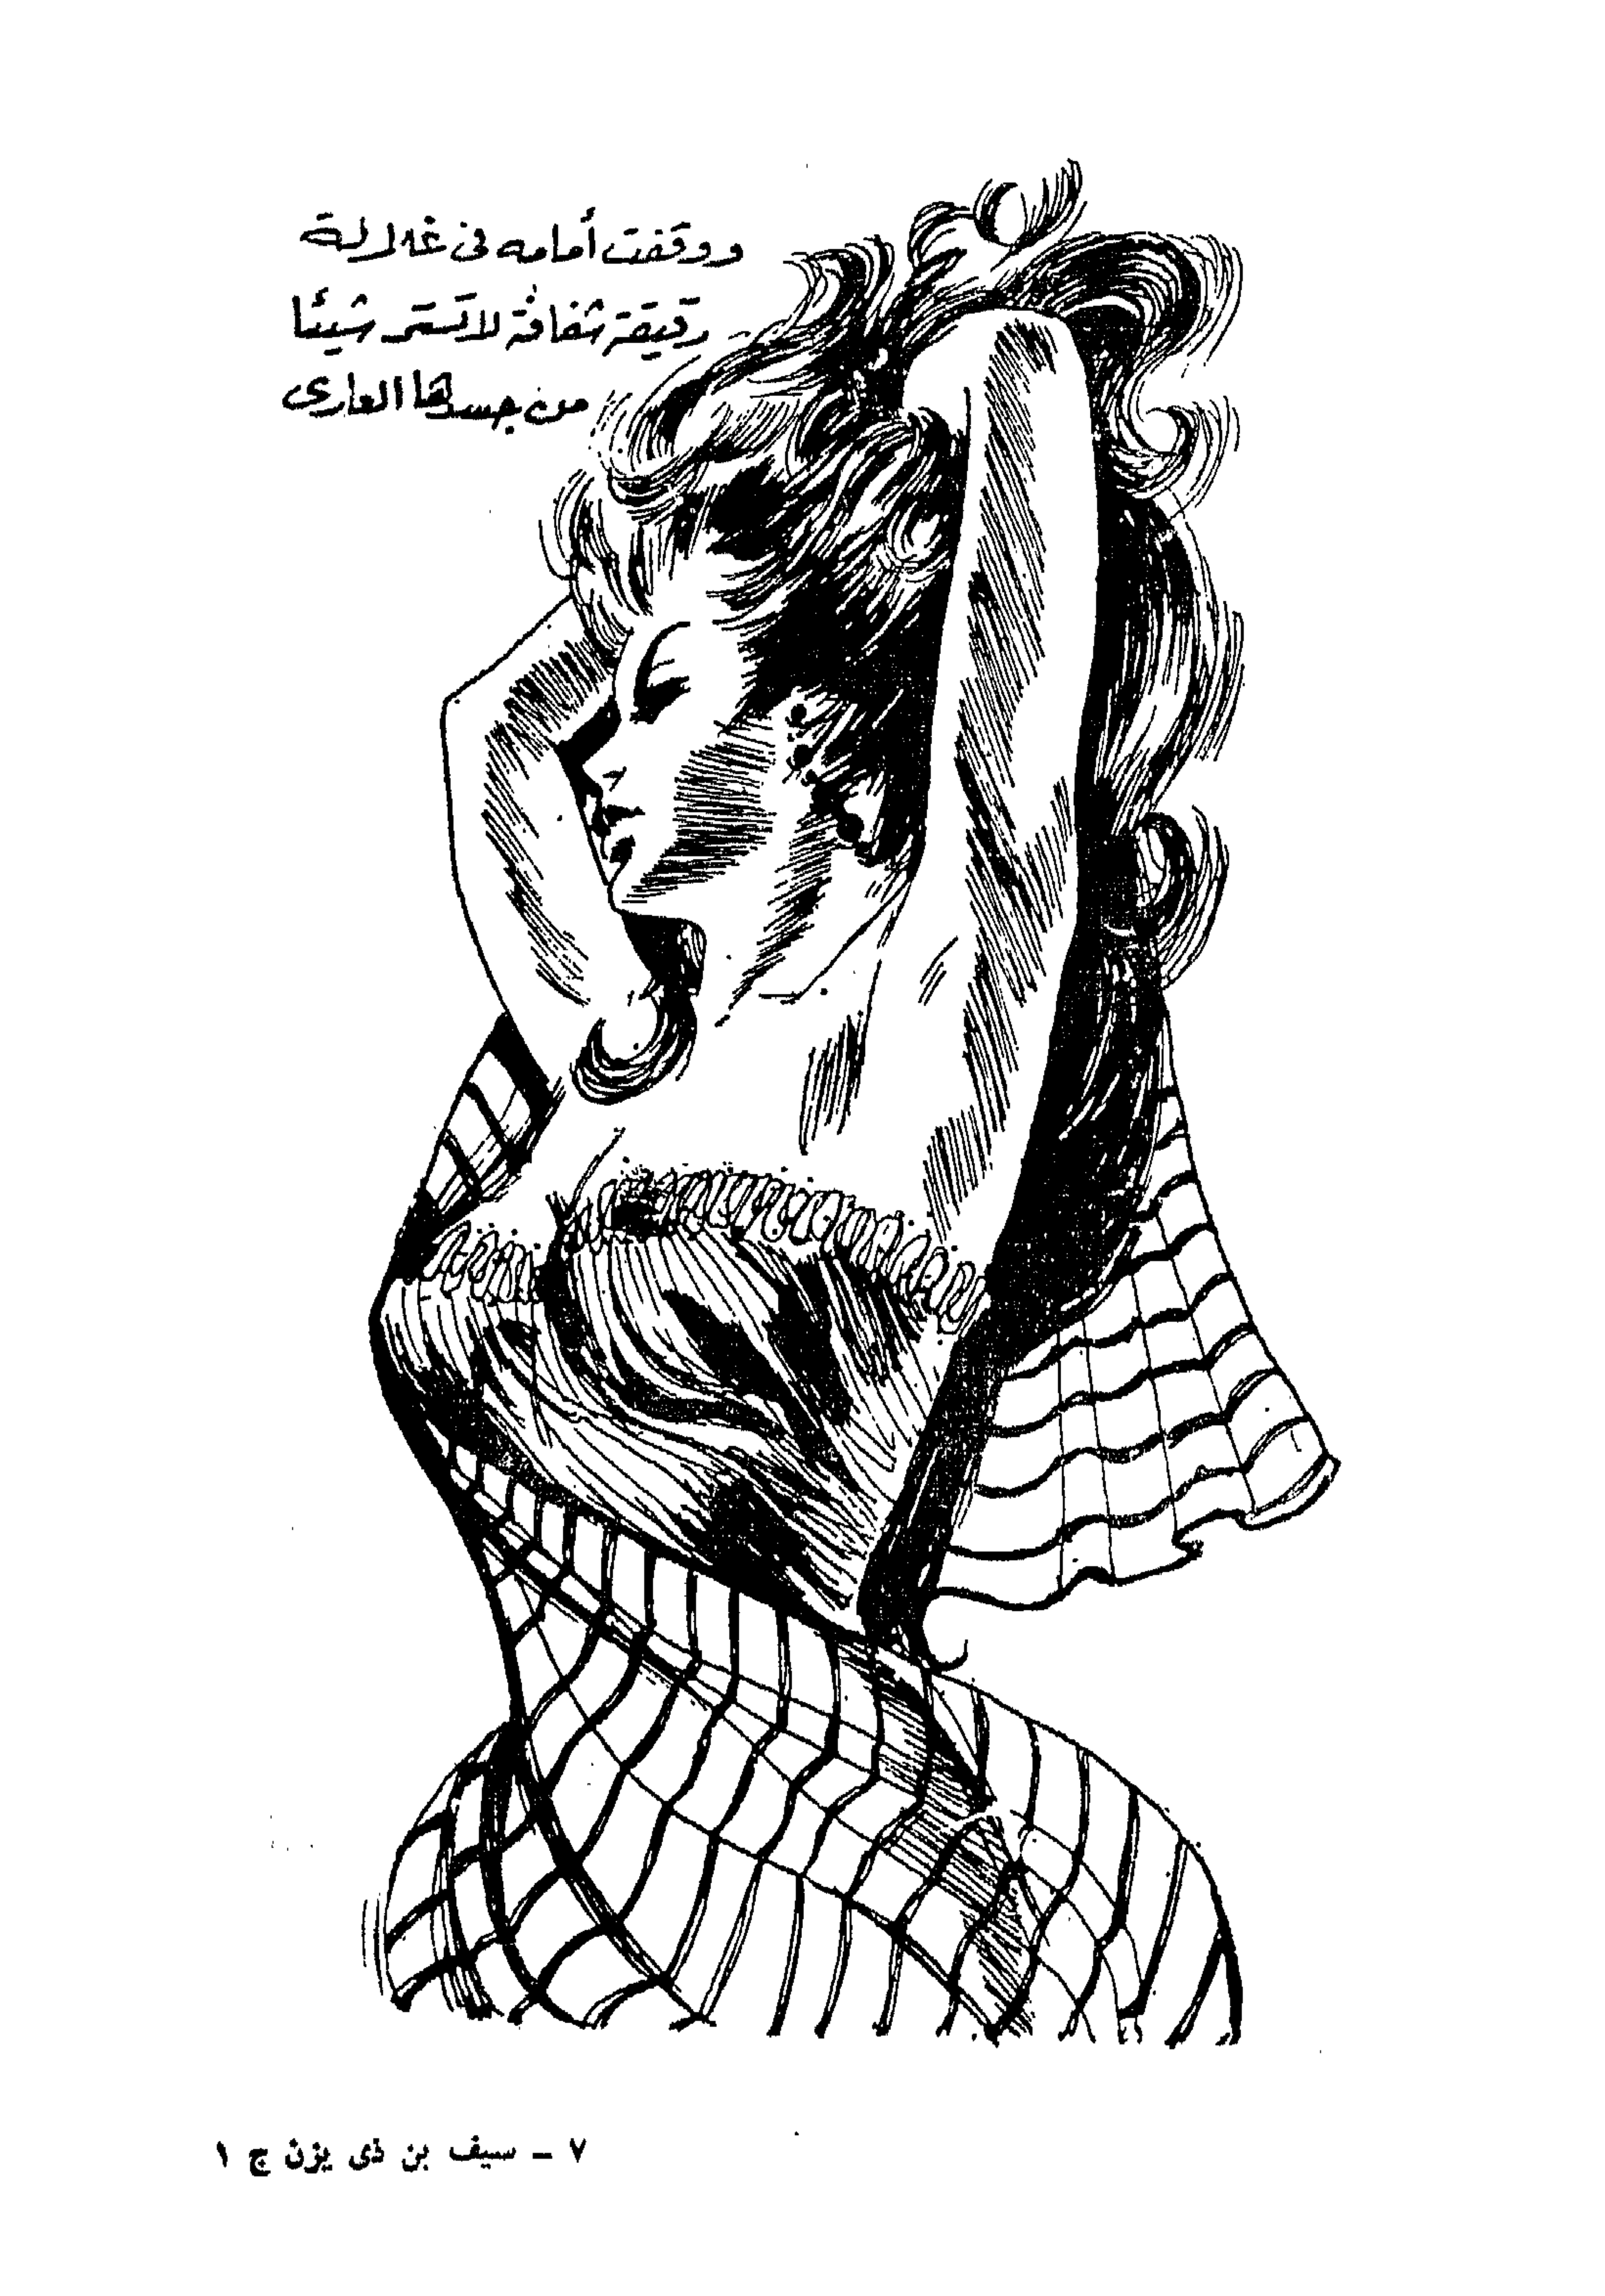 ووقفت أمامه فى غلالة
رقيقة شفافة لا تستر شيئا
من جسدها العارى
٧ ــ سيف بن ذى يزن ج ١